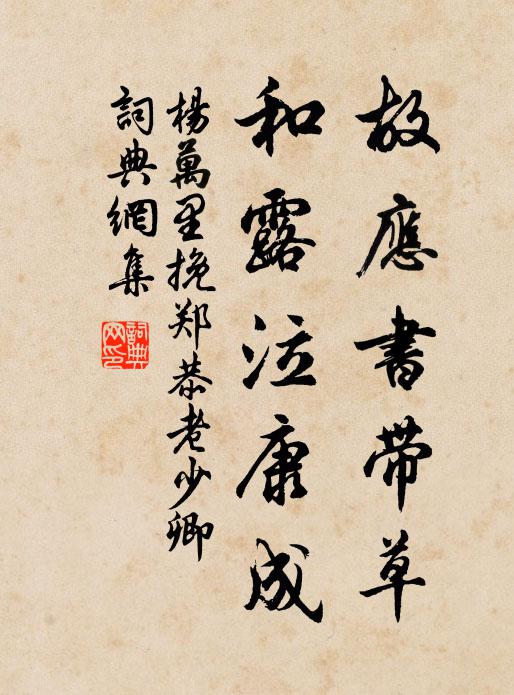 故應書帶草
和露泣康成
楊萬里挽郑恭老少卿
詞典網集
詞典网印